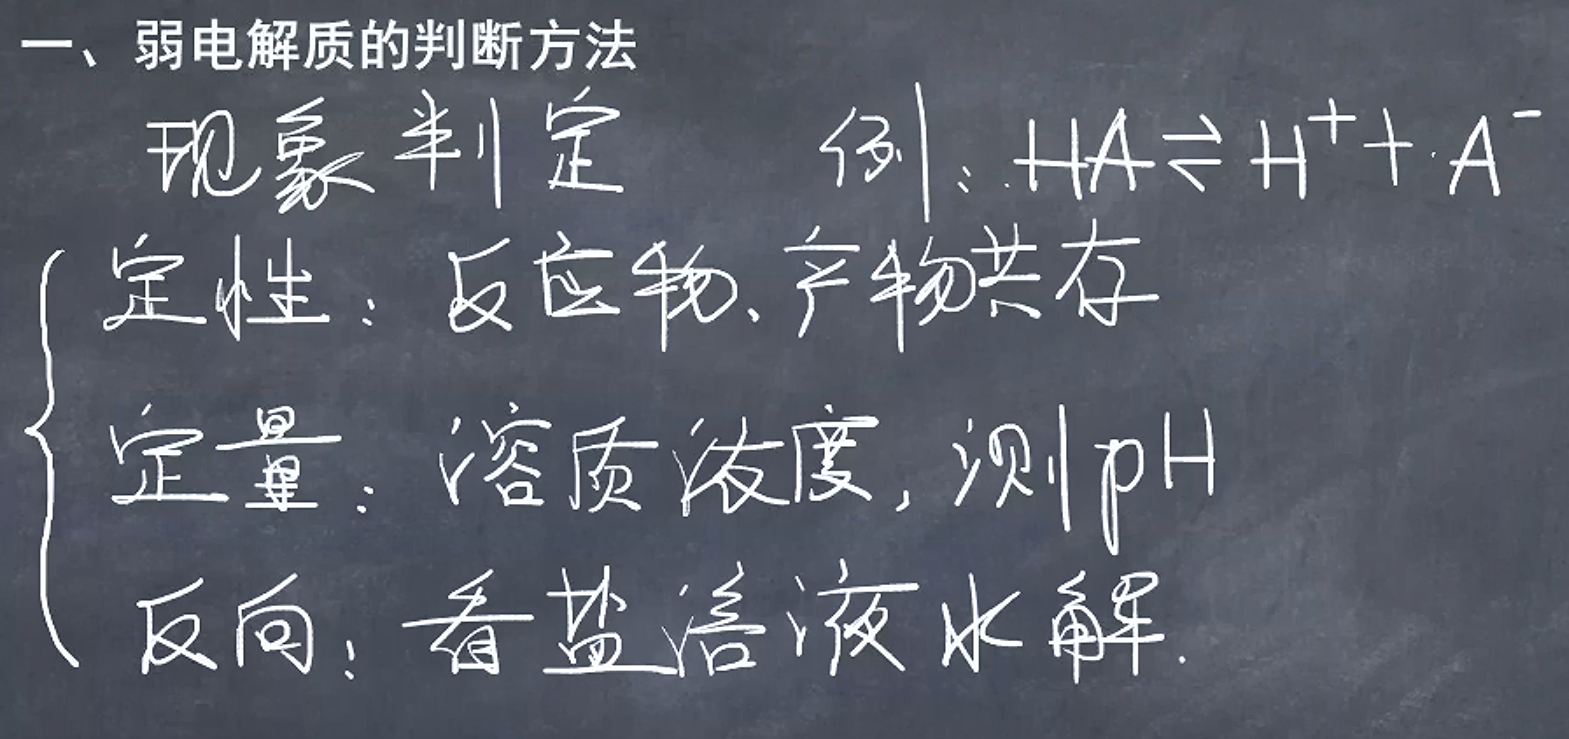 一、弱电解质的判断方法
现象判定 例：HA⇌H⁺+A⁻
定性：反应物、产物共存
定量：溶质浓度，测pH
反向：看盐溶液水解.